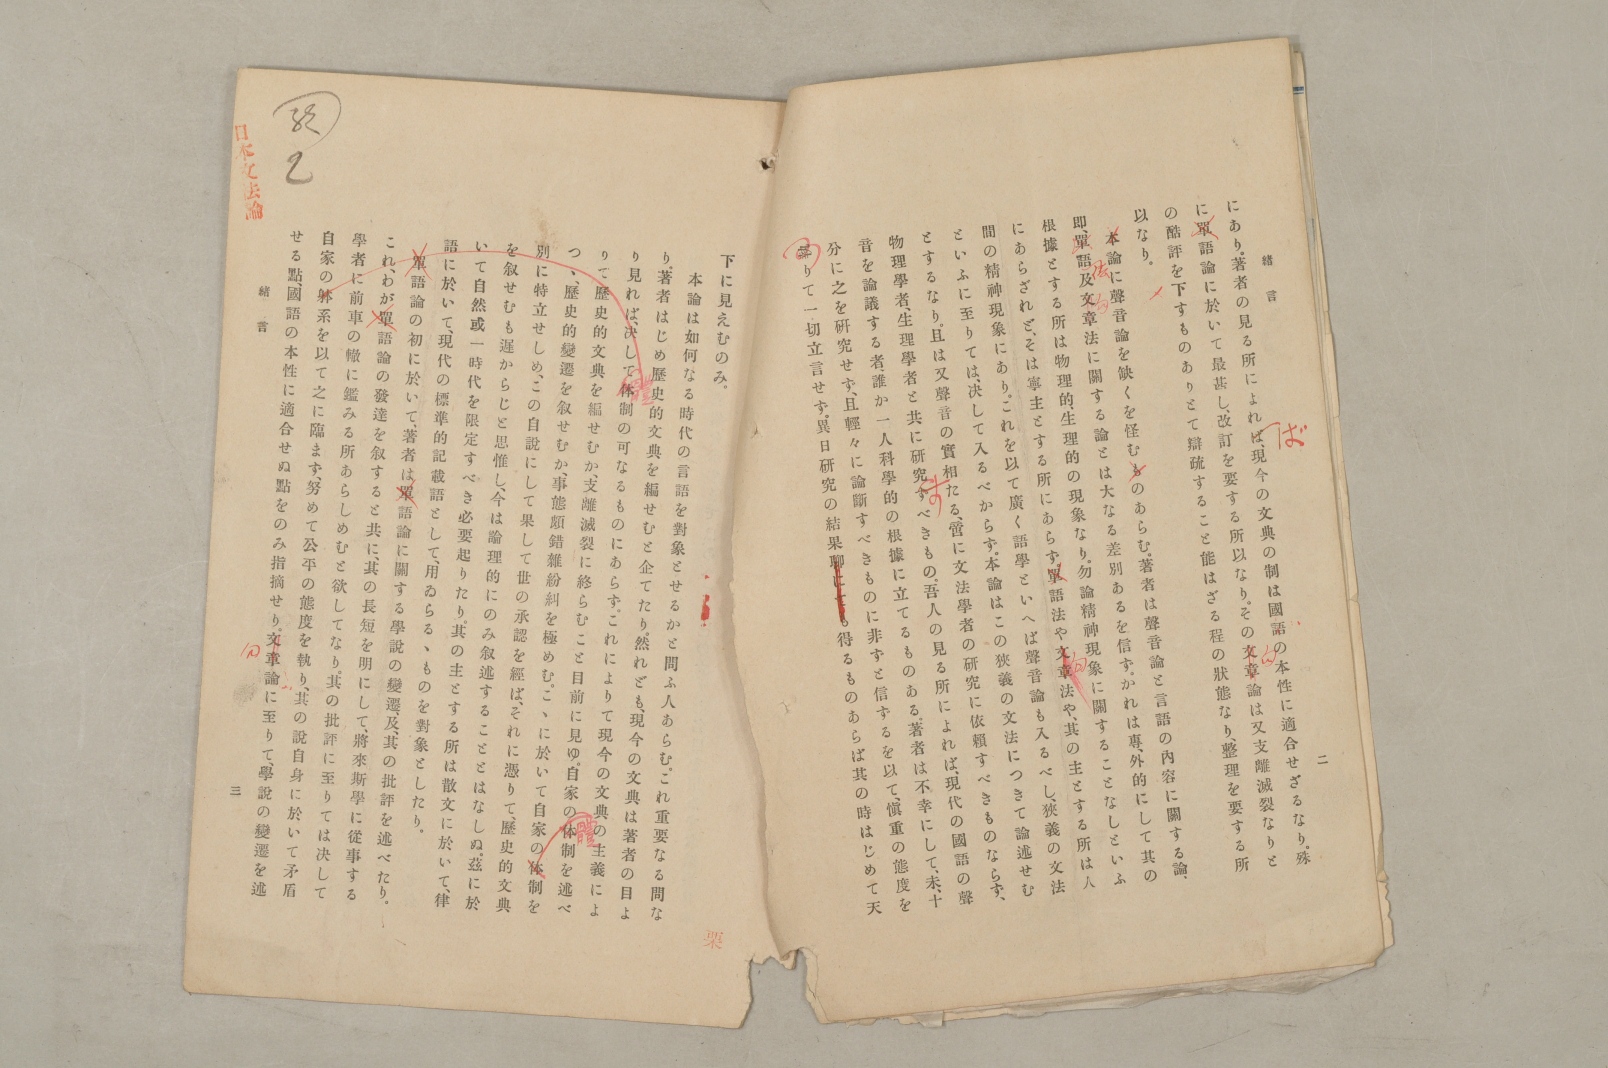 緒言
二
にあり。著者の見る所によれば、現今の文典の制は國語の本性に適合せざるなり。殊
に單語論に於いて最甚し、改訂を要する所以なり。その文章論は又支離滅裂なりと
の酷評を下すものありとて辯疏すること能はざる程の狀態なり、整理を要する所
以なり。
本論に聲音論を缺くを怪むものあらむ。著者は聲音論と言語の內容に關する論、
即、單語及文章法に關する論とは大なる差別あるを信ず。かれは專、外的にして其の
根據とする所は物理的、生理的の現象なり。勿論精神現象に關することなしといふ
にあらざれど、そは寧主とする所にあらず。單語法や文章法や、其の主とする所は人
間の精神現象にあり。これを以て廣く語學といへば聲音論も入るべし、狹義の文法
といふに至りては、決して入るべからず。本論はこの狹義の文法につきて論述せむ
とするなり。且は又聲音の實相たる、啻に文法學者の研究に依賴すべきものならず、
物理學者、生理學者と共に研究すべきもの、吾人の見る所によれば、現代の國語の聲
音を論議する者、誰か一人科學的の根據に立てるものある。著者は不幸にして、未、十
分に之を研究せず、且輕々に論斷すべきものに非ずと信ずるを以て、愼重の態度を
りて一切立言せず。異日研究の結果聊にても得るものあらば其の時はじめて天
ば
ず
下に見えむのみ。
本論は如何なる時代の言語を對象とせるかと問ふ人あらむ。これ重要なる問な
り。著者はじめ歷史的文典を編せむと企てたり。然れども、現今の文典は著者の目よ
り見れば、決して体制の可なるものにあらず。これによりて現今の文典の主義によ
りて歷史的文典を編せむか、支離滅裂に終らむこと目前に見ゆ。自家の体制を述べ
つゝ、歷史的變遷を叙せむか、事態頗錯雜紛糾を極めむ。こゝに於いて自家の体制を
別に特立せしめ、この自說にして果して世の承認を經ば、それに憑りて、歷史的文典
を叙せむも遲からじと思惟し、今は論理的にのみ叙述することとはなしぬ。茲に於
いて自然或一時代を限定すべき必要起りたり。其の主とする所は散文に於いて、律
語に於いて、現代の標準的記載語として、用ゐらるゝものを對象としたり。
單語論の初に於いて、著者は單語論に關する學說の變遷、及、其の批評を述べたり。
これ、わが單語論の發達を叙すると共に、其の長短を明にして、將來斯學に從事する
學者に前車の轍に鑑みる所あらしめむと欲してなり。其の批評に至りては決して
自家の躰系を以て之に臨まず、努めて公平の態度を執り、其の說自身に於いて矛盾
せる點、國語の本性に適合せぬ點をのみ指摘せり。文章論に至りて、學說の變遷を述
緒言
三
體
體
日本文法論
栗
2